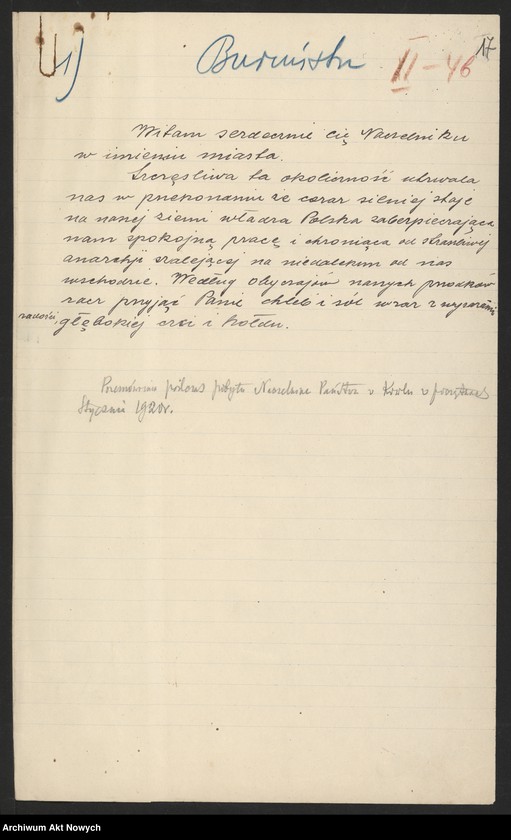 17
1) Burmistrz II-46
Witam serdecznie Cię Naczelniku
w imieniu miasta.
Szczęśliwa ta okoliczność utrwala
nas w przekonaniu że coraz silniej staje
na naszej ziemi władza Polska zabezpieczająca
nam spokojną pracę i chroniąca od straszliwej
anarchji szalejącej na niedalekim od nas
wschodzie. Według obyczajów naszych przodków
racz przyjąć Panie chleb i sól wraz z wyrazami
radości, głębokiej czci i hołdu.
Przemówienie podczas pobytu Naczelnika Państwa w
Styczniu 1920r.
Archiwum Akt Nowych